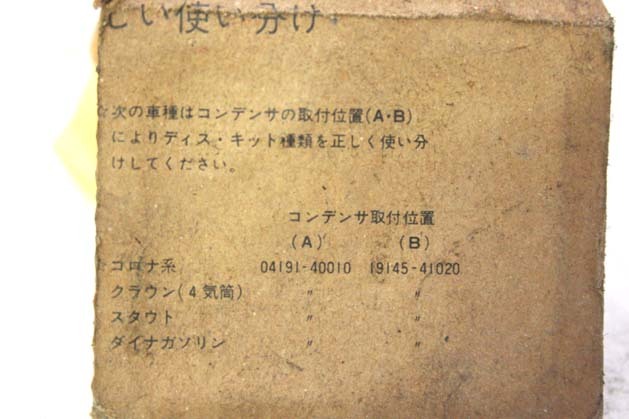 しい使い分け
☆次の車種はコンデンサの取付位置(A・B)
によりディス・キット種類を正しく使い分
けしてください。
コンデンサ取付位置
(A) (B)
コロナ系 04191-40010 19145-41020
クラウン(4気筒) 〃 〃
スタウト 〃 〃
ダイナガソリン 〃 〃